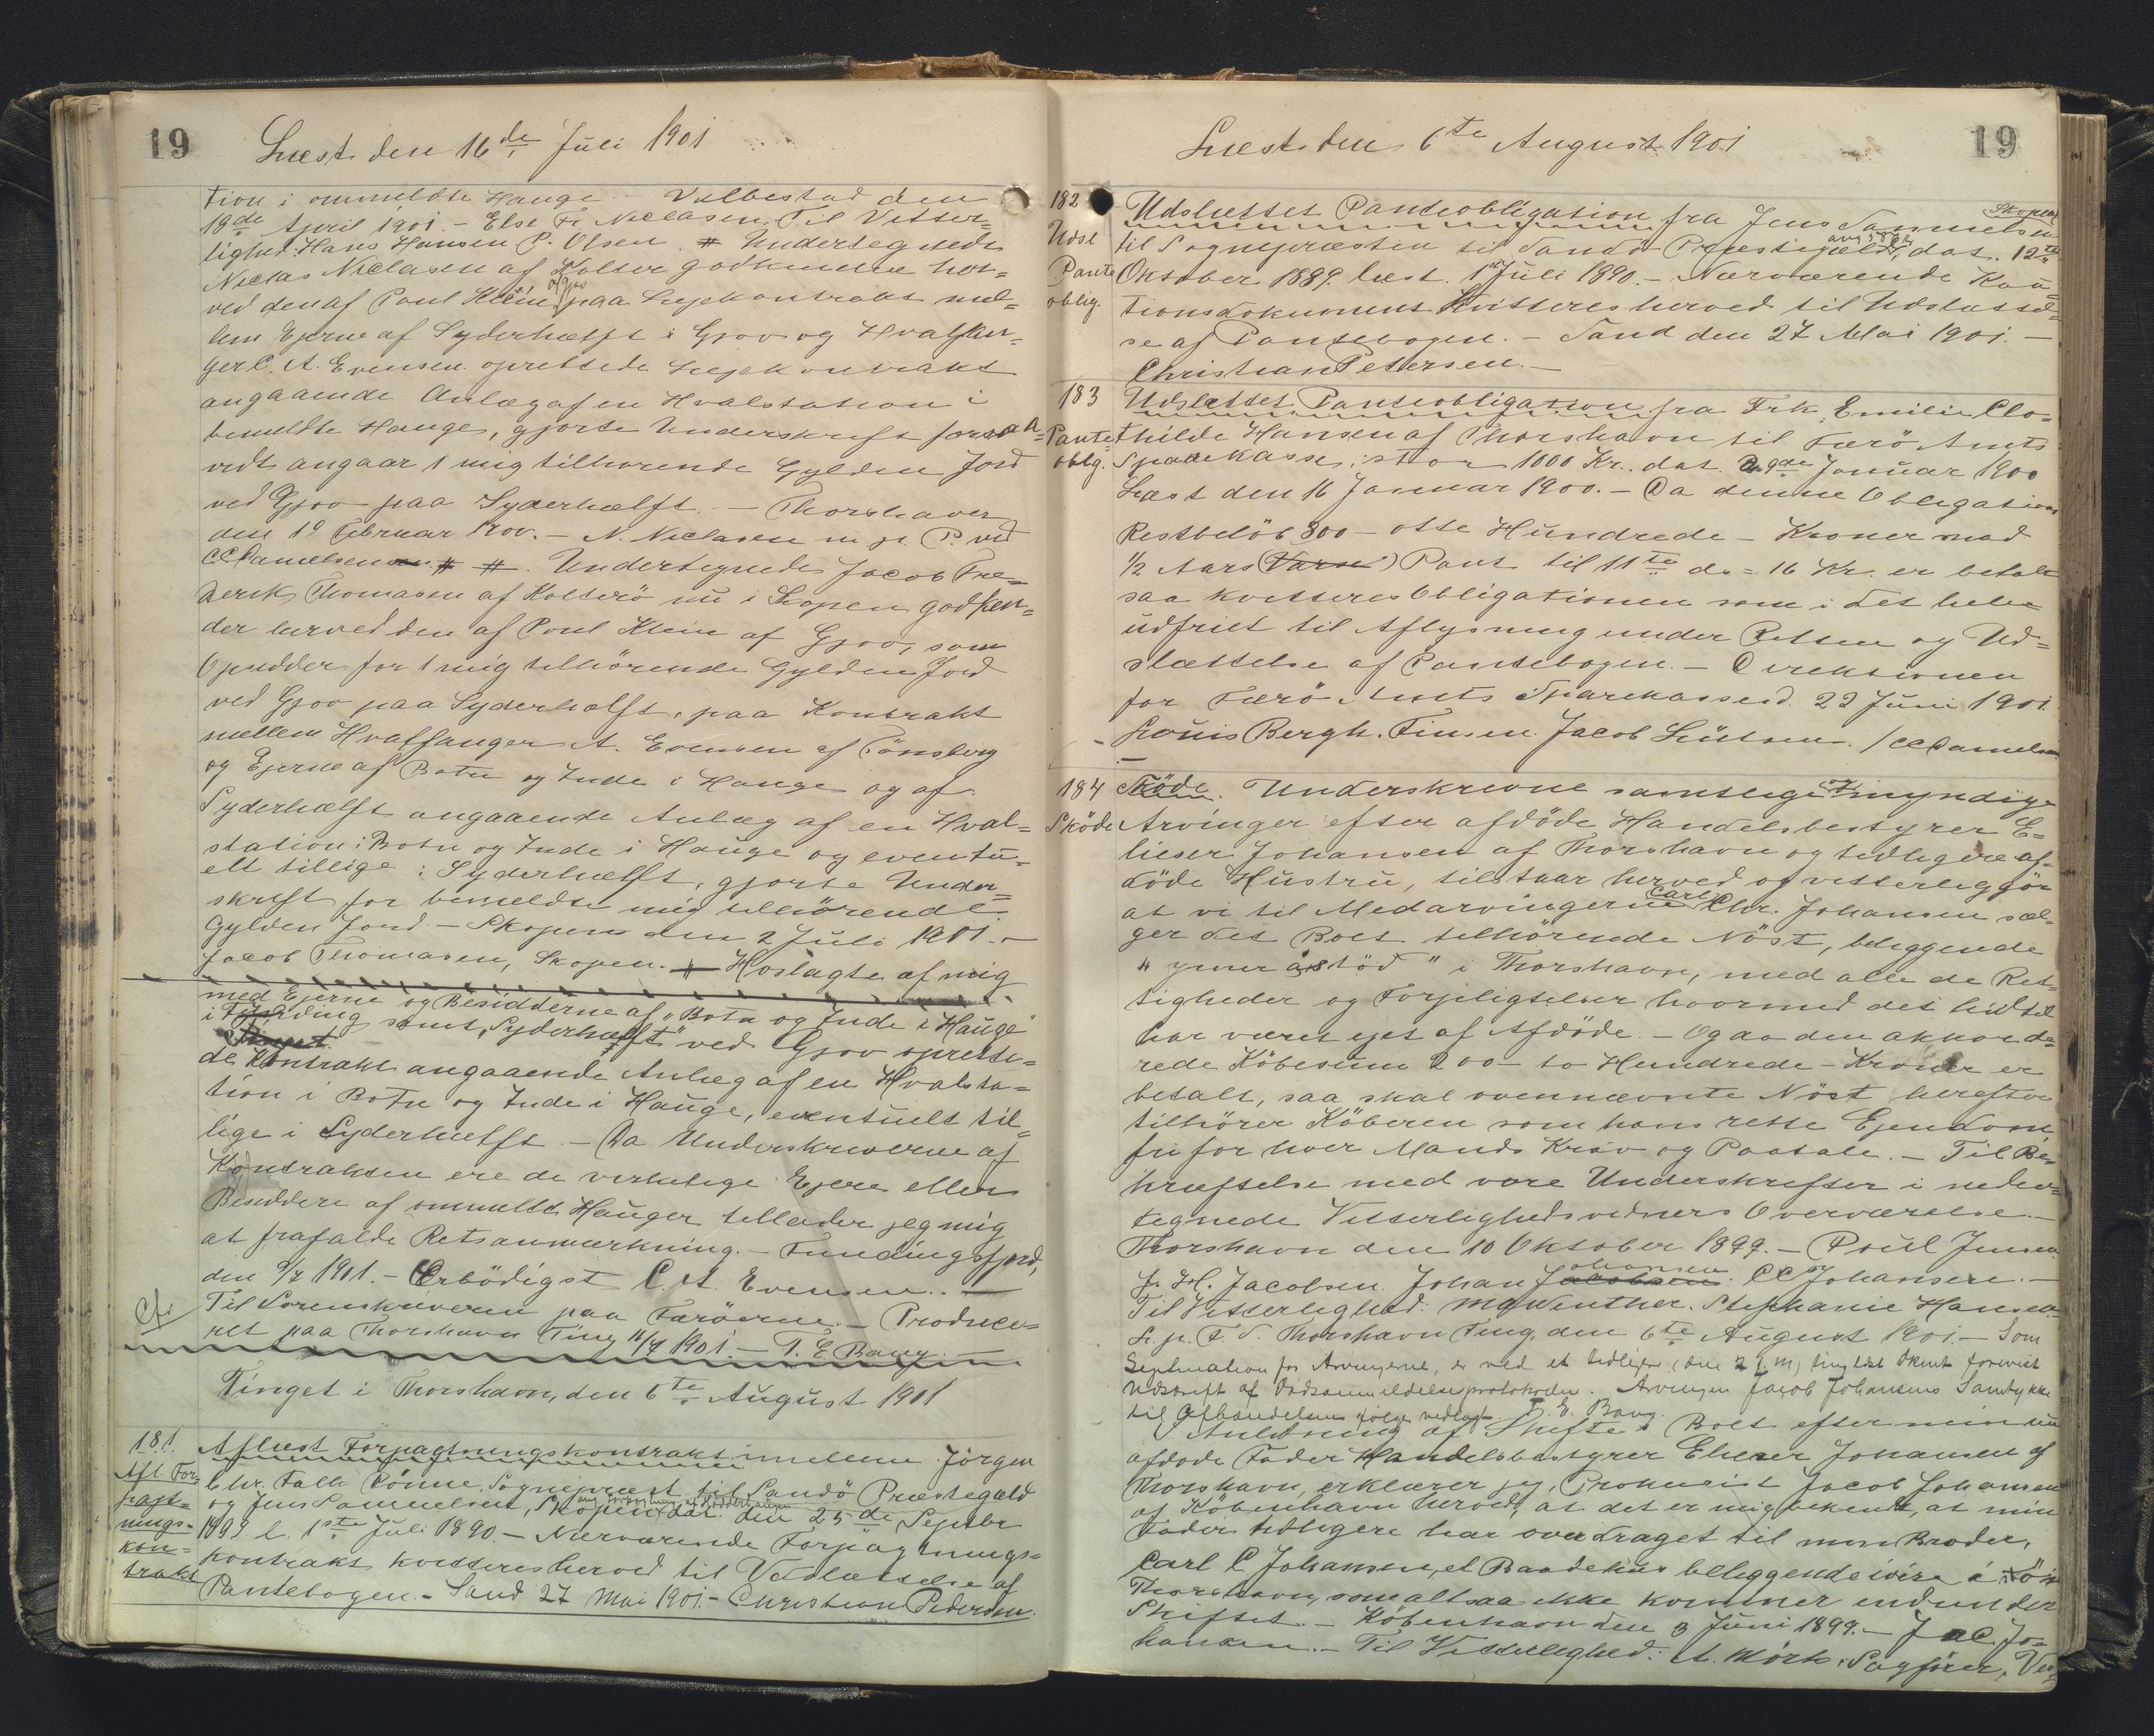 19
Læst den 16de Juli 1901
tion i ommeldte Hauge - Velbestad den
19de April 1901. - Else Fr. Niclasen. Til Vitter-
lighed: Hans Hansen P. Olsen. # Undertegnede
Niclas Niclasen af Kolter godkender her-
ved den af Poul Klein af Gjov paa Lejekontrakt mel-
lem Ejerne af Syderhælft i Gjov og Hvalfan-
ger C. A. Evensen oprettede Lejekontrakt
angaaende Anlæg af en Hvalstation i
bemeldte Hauge, gjorte Underskrift forsaa-
vidt angaar 1 mig tilhørende Gylden Jord
ved Gjov paa Syderhælft. - Thorshavn
den 19 Februar 1900. - N. Niclasen m. p. P. ved
CC Danielsen # #. Undertegnede Jacob Fre-
derik Thomasen af Kolterö nu i Skopen godken-
der herved den af Poul Klein af Gjov, som
Opsidder for 1 mig tilhörende Gylden Jord
ved Gjov paa Syderhælft, paa Kontrakt
mellem Hvalfanger A. Evensen af Tönsberg
og Ejerne af Botn og Inde i Hauge og af
Syderhælft angaaende Anlæg af en Hval-
station i Botn og Inde i Hauge og eventu-
elt tillige i Syderhælft, gjorte Under-
skrift for bemeldte mig tilhörende
Gylden Jord - Skopen den 2 Juli 1901. -
Jacob Thomasen, Skopen. # Hoslagte af mig
med Ejerne og Besidderne af "Botn og Inde i Hauge"
i Funding samt "Syderhælft" ved Gjov oprette-
de Kontrakt angaaende Anlæg af en Hvalsta-
tion i Botn og Inde i Hauge, eventuelt til-
lige i Syderhælft. - Da Underskriverne af
Kontrakten ere de virkelige Ejere eller
Besiddere af ommeldte Hauger tillader jeg mig
at frafalde Retsanmærkning. - Fundingsfjord,
den 9/7 1901. - Erbödigst C. A. Evensen. -
Til Sorenskriveren paa Færöerne. - Produce-
ret paa Thorshavn Ting 16/7 1901. - P. E. Bang. -
Tinget i Thorshavn, den 6te August 1901
181.
Afl. For-
pagt-
nings-
kon-
trakt
Aflæst Forpagtningskontrakt imellem Jörgen
Chr. Falk Rönne, Sognepræst til Sandö Præstegæld
og Jens Samuelsen, Skopen, dat. den 25de Septbr
1889 l. 1ste Juli 1890 - Nærværende Forpagtnings-
kontrakt kvitteres herved til Udslættelse af
Pantebogen. - Sand 27 Mai 1901. - Christian Pedersen.
19
Læst den 6te August 1901
182
Udsl
Pante
oblig.
Udslettet Panteobligation fra Jens Samuelsen
Skopen
til Sognepræsten til Sandö Præstegæld, dat. 12te
Oktober 1889. læst. 1ste Juli 1890. - Nærværende Kau-
tionsdokument kvitteres herved til Udslettel-
se af Pantebogen. - Sand den 27 Mai 1901. -
Christian Petersen. -
183
Pante-
oblg.
Udslettet Panteobligation fra Frk. Emilie Clo-
thilde Hansen af Thorshavn til Færö Amts
Sparekasse, stor 1000 Kr. dat. 9de Januar 1900
Læst den 16 Januar 1900. - Da denne Obligations
Restbelöb 800 - otte Hundrede - Kroner med
1/2 Aars Rent til 11te ds = 16 Kr. er betalt
saa kvitteres Obligationen som i det hele
udfriet til Aflysning under Retten og Ud-
slættelse af Pantebogen. - Direktionen
for Færö Amts Sparekasse d. 22 Juni 1901
Louis Bergh. Finsen. Jacob Lützen. / CC Danielsen
184
Sköde
Sköde. Underskrevne samtlige myndige
Arvinger efter afdöde Handelsbestyrer E-
lieser Johansen af Thorshavn og tidligere af-
döde Hustru, tilstaar herved og vitterliggör
at vi til Medarvingerne Carl Chr. Johansen sæl-
ger det Boet tilhörende Nöst, beliggende
" ymer á stöd" i Thorshavn, med alle de Ret-
tigheder og Forpligtelser hvormed det hidtil
har været ejet af Afdöde. - Og da den akkorde-
rede Köbesum 200 - to Hundrede - Kroner er
betalt, saa skal ovennævnte Nöst herefter
tilhörer Köberen som hans rette Ejendom,
fri for hver Mands Krav og Paatale. - Til Be-
kræftelse med vore Underskrifter i neden-
tegnede Vitterlighedsvidners Overværelse. -
Thorshavn den 10 Oktober 1899. - Poul Jensen
J. H. Jacobsen. Johan Johansen. CC Johansen. -
Til Vitterlighed: M Winther. Stephanie Hansen. -
L. p. F. S. Thorshavn Ting, den 6te August 1901. - Som
Legitimation for Arvingerne, er ved et tidligere (den 2 f. M.) tinglæst Dkmt forevist
Udskrift af Dödsanmeldelsesprotokollen. Arvingen Jacob Johansens Samtykke
til Afhændelsen fölger vedlagt. P. E. Bang.
I Anledning af Skifte i Boet efter min nu
afdöde Fader Handelsbestyrer Elieser Johansen af
Thorshavn, erklærer jeg, Prokurist Jacob Johansen
af Köbenhavn herved, at det er mig bekendt, at min
Fader tidligere har overdraget til min Broder,
Carl C Johansen, et Baadehus beliggende i
Thorshavn, som altsaa ikke kommer ind under
Skiftet. - Köbenhavn den 3 Juni 1899. - Jac. Jo-
hansen. - Til Vitterlighed: A. Mörk, Sagförer, Ves-